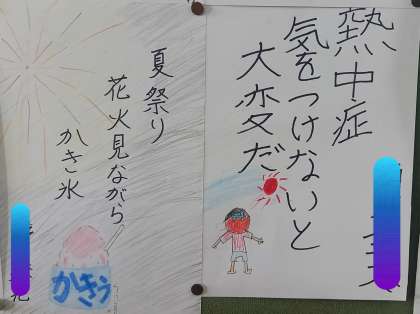 熱中症
気をつけないと
大変だ
夏祭り
花火見ながら
かき氷
かきごおり